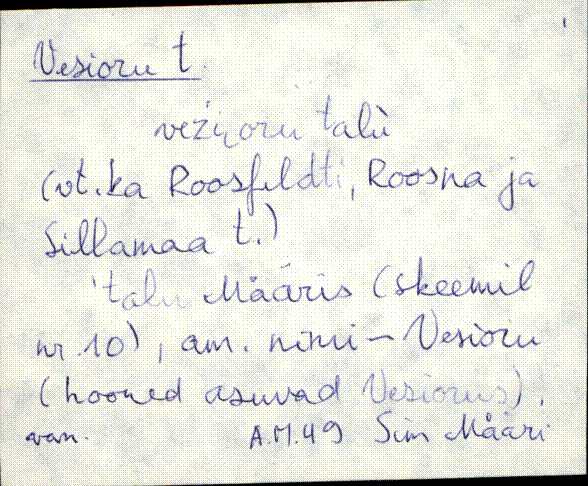 Vesioru t.
vežịoru talù
(vt. ka Roosfeldti, Roosna ja
Sillamaa t.)
'talu Määris (skeemil
nr. 10), am. nimi - Vesioru
(hooned asuvad Vesiorus).
van. A.M.49 Sim Määri